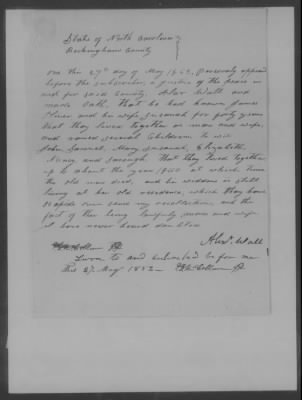 State of North Carolina
Rockingham County
On this 27th day of May 1852, Personaly appeard
before the subscriber, a justice of the peace in
and for said County, Alex Wall and
made Oath, That he had known James
and his wife Susanah for forty years
that they lived together as man and wife,
and raised several Children to wit
John, Samuel, Mary, Susanah, Elizabeth,
Nancy and That they lived together
up to about the year 1840 at which time
the old man died, and his widdow is still
living at her old residence, which they have
ever since my recollection, and the
fact of their being lawfully man and wife
I have never heard doubted
Alex. Wall
Sworn to and subscribed before me
this 27 May 1852